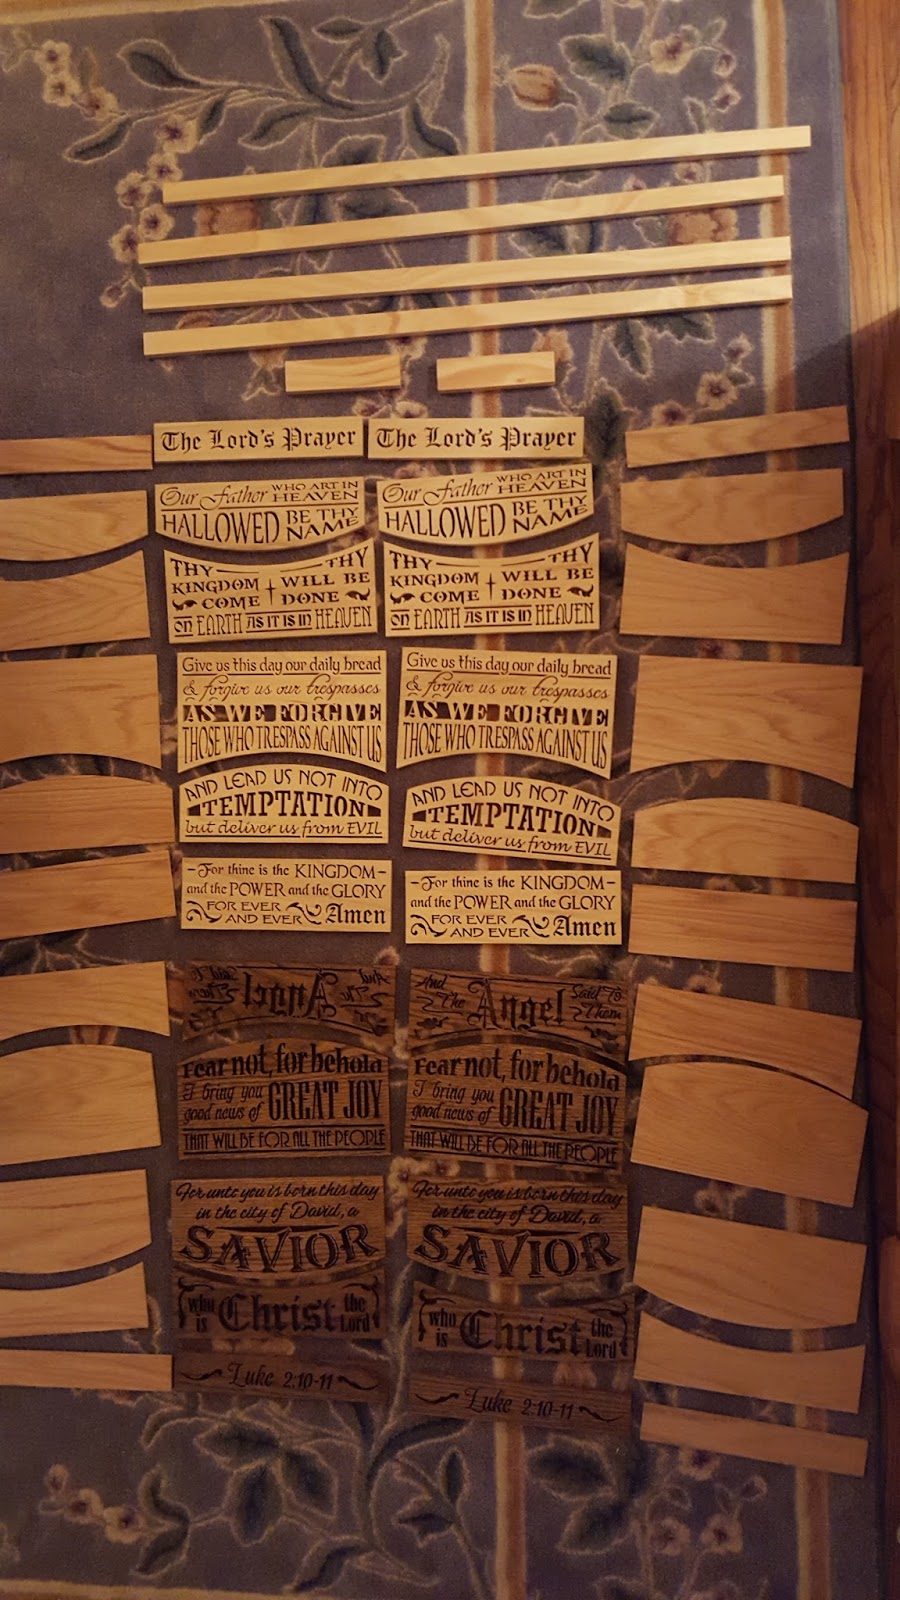 The Lord's Prayer
Our Father WHO ART IN HEAVEN
HALLOWED BE THY NAME
THY THY
KINGDOM WILL BE
COME DONE
ON EARTH AS IT IS IN HEAVEN
Give us this day our daily bread
& forgive us our trespasses
AS WE FORGIVE
THOSE WHO TRESPASS AGAINST US
AND LEAD US NOT INTO
TEMPTATION
but deliver us from EVIL
For thine is the KINGDOM
and the POWER and the GLORY
FOR EVER
AND EVER Amen
And The Angel Said To Them
Fear not, for behold
I bring you
good news of GREAT JOY
THAT WILL BE FOR ALL THE PEOPLE
For unto you is born this day
in the city of David, a
SAVIOR
who is Christ the Lord
Luke 2:10-11
The Lord's Prayer
Our Father WHO ART IN HEAVEN
HALLOWED BE THY NAME
THY THY
KINGDOM WILL BE
COME DONE
ON EARTH AS IT IS IN HEAVEN
Give us this day our daily bread
& forgive us our trespasses
AS WE FORGIVE
THOSE WHO TRESPASS AGAINST US
AND LEAD US NOT INTO
TEMPTATION
but deliver us from EVIL
For thine is the KINGDOM
and the POWER and the GLORY
FOR EVER
AND EVER Amen
And The Angel Said To Them
Fear not, for behold
I bring you
good news of GREAT JOY
THAT WILL BE FOR ALL THE PEOPLE
For unto you is born this day
in the city of David, a
SAVIOR
who is Christ the Lord
Luke 2:10-11